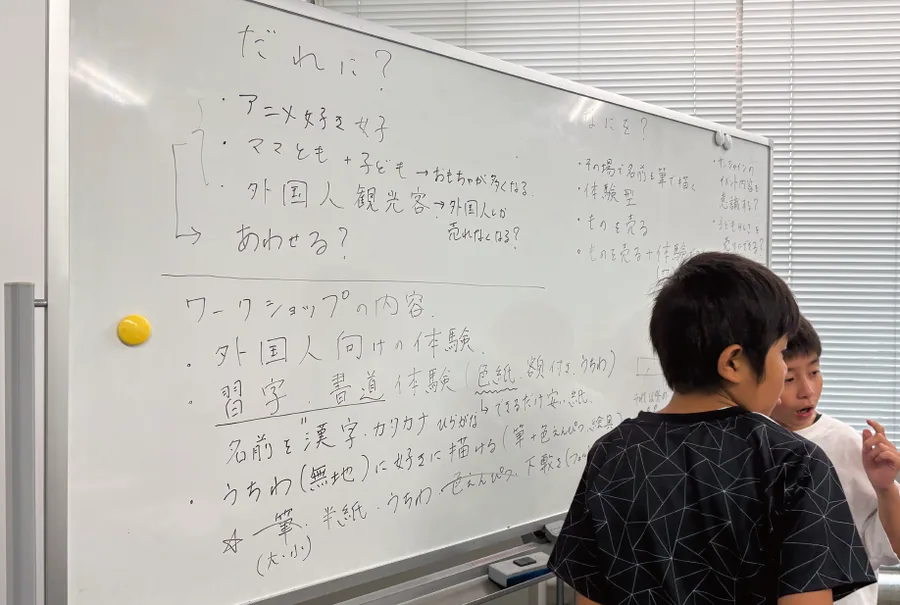 だれに?
・アニメ好き女子
・ママとも + 子ども → おもちゃが多くなる
・外国人観光客 → 外国人しか
売れなくなる?
あわせる?
ワークショップの内容.
・外国人向けの体験.
・習字.書道体験(色紙.額付き.うちわ)
できるだけ安い紙.
名前を漢字.カタカナ ひらがな
・うちわ(無地)に好きに描ける(筆+色えんぴつ
☆ 筆.半紙.うちわ.色えんぴつ.下敷き
(大・小)
なにを?
・その場で名前を筆で描く
・体験型
・ものを売る
・ものを売る+体験
意識する?